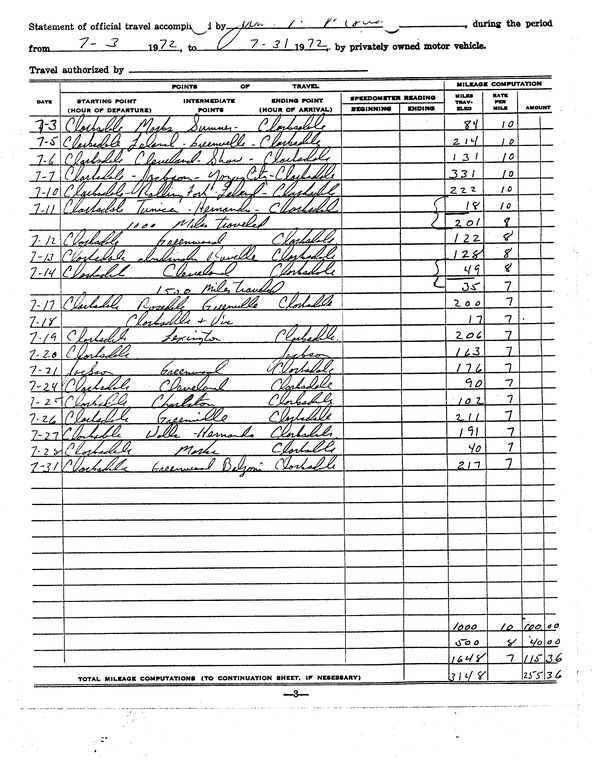 Statement of official travel accompli d by , during the period
from 7-3 1972, to 7-31 1972, by privately owned motor vehicle.
Travel authorized by
POINTS OF TRAVEL MILEAGE COMPUTATION
DATE STARTING POINT (HOUR OF DEPARTURE) INTERMEDIATE POINTS ENDING POINT (HOUR OF ARRIVAL) SPEEDOMETER READING BEGINNING ENDING MILES TRAV- ELED RATE PER MILE AMOUNT
7-3 Clarksdale Marks Sumner - Clarksdale 84 10
7-5 Clarksdale Leland - Greenville - Clarksdale 214 10
7-6 Clarksdale Cleveland - Shaw - Clarksdale 131 10
7-7 Clarksdale - Jackson - Yazoo City - Clarksdale 331 10
7-10 Clarksdale - Rolling Fork - Leland - Clarksdale 222 10
7-11 Clarksdale Tunica - Hernando - Clarksdale 18 10
1000 Miles traveled 201 8
7-12 Clarksdale Greenwood Clarksdale 122 8
7-13 Clarksdale Clarksdale 128 8
7-14 Clarksdale Cleveland Clarksdale 49 8
1500 Miles traveled 35 7
7-17 Clarksdale Rosedale Greenville Clarksdale 200 7
7-18 Clarksdale + Vic 17 7
7-19 Clarksdale Lexington Clarksdale 206 7
7-20 Clarksdale Jackson 163 7
7-21 Jackson Greenwood Clarksdale 176 7
7-24 Clarksdale Cleveland Clarksdale 90 7
7-25 Clarksdale Charleston Clarksdale 102 7
7-26 Clarksdale Greenville Clarksdale 211 7
7-27 Clarksdale Walls - Hernando Clarksdale 191 7
7-28 Clarksdale Marks Clarksdale 40 7
7-31 Clarksdale Greenwood Belzoni Clarksdale 217 7
1000 10 100 00
500 8 40 00
1648 7 115 36
TOTAL MILEAGE COMPUTATIONS (TO CONTINUATION SHEET, IF NESESSARY) 3148 255 36
—3—